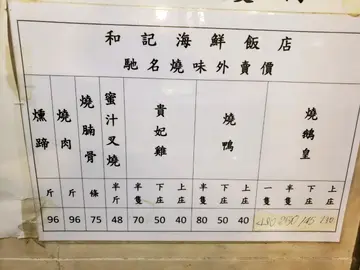 和記海鮮飯店
馳名燒味外賣價
燻蹄 燒肉 燒腩骨 蜜汁叉燒 貴妃雞 燒鴨 燒鵝皇
斤 斤 條 半斤 半隻 下庄 上庄 半隻 下庄 上庄 一隻 半隻 下庄 上庄
96 96 75 48 70 50 40 80 50 40